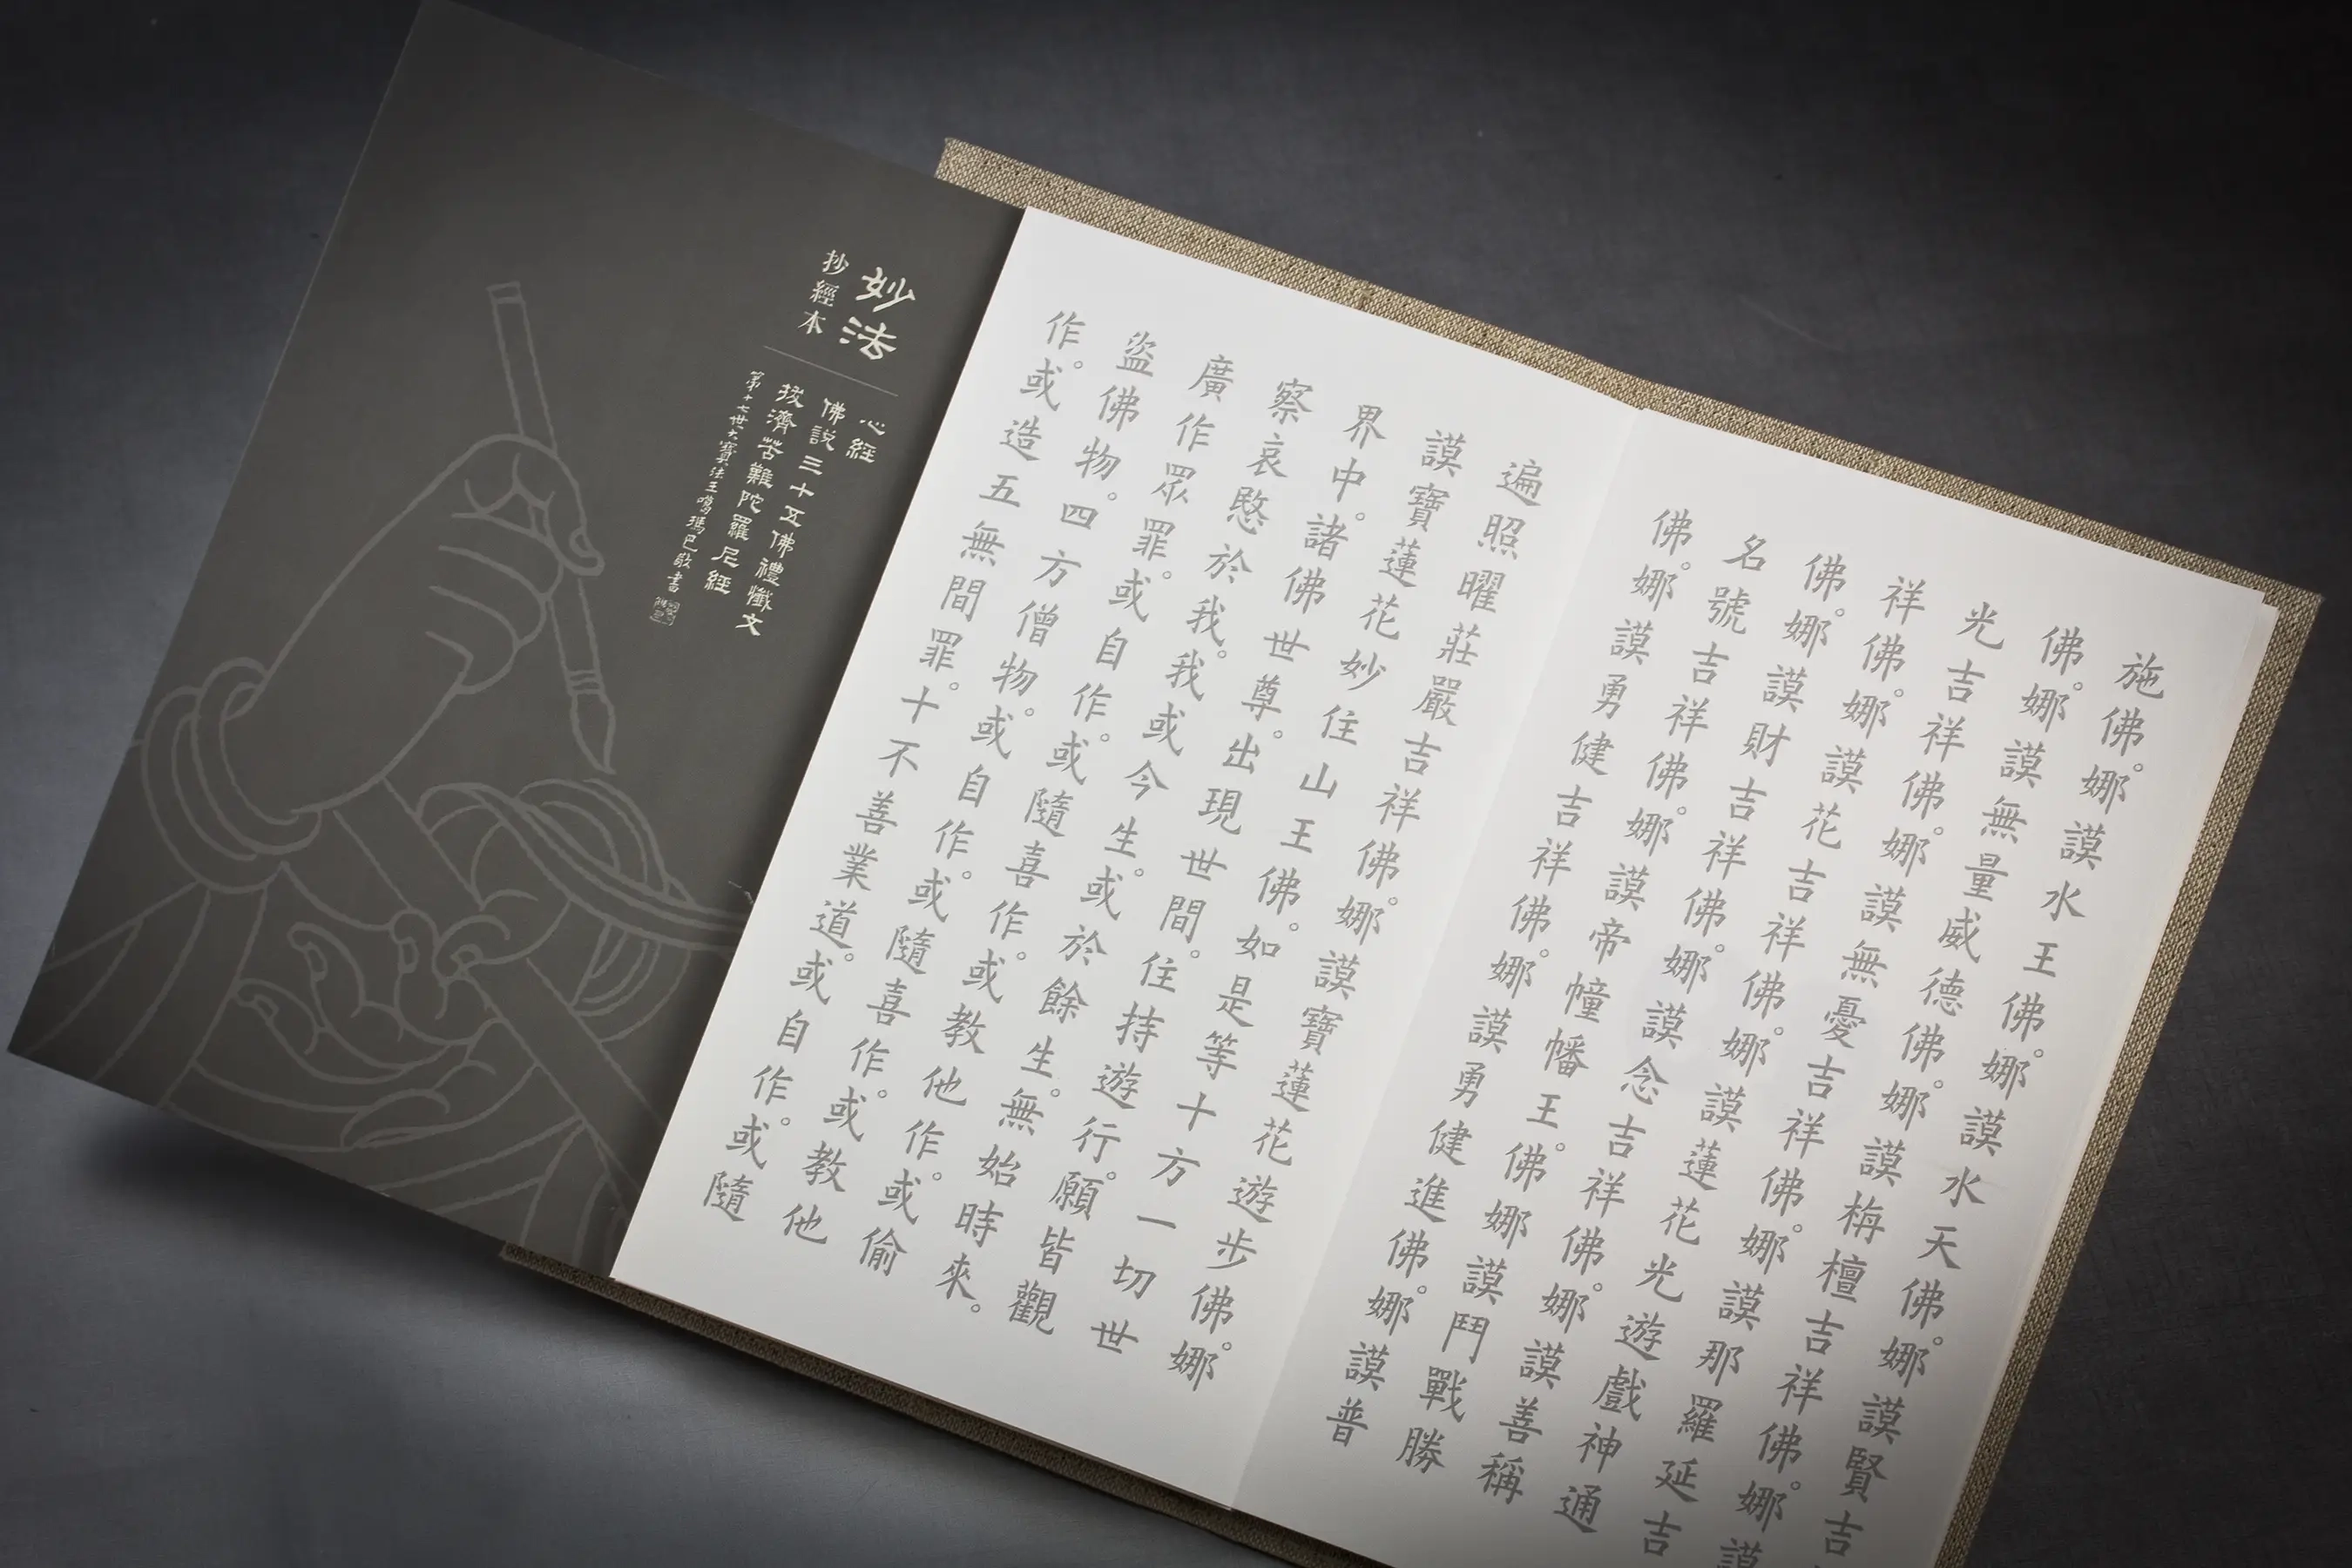 施佛。娜謨水王佛。娜謨水天佛。娜謨賢吉
佛。娜謨無量威德佛。娜謨栴檀吉祥佛。娜謨
光吉祥佛。娜謨無憂吉祥佛。娜謨那羅延吉
祥佛。娜謨花吉祥佛。娜謨蓮花光遊戲神通
佛。娜謨財吉祥佛。娜謨念吉祥佛。娜謨善稱
名號吉祥佛。娜謨帝幢幡王佛。娜謨鬥戰勝
佛。娜謨勇健吉祥佛。娜謨勇健進佛。娜謨普
遍照曜莊嚴吉祥佛。娜謨寶蓮花遊步佛。娜
謨寶蓮花妙住山王佛。如是等十方一切世
界中。諸佛世尊。出現世間。住持遊行。願皆觀
察哀愍於我。我或今生。或於餘生。無始時來。
廣作眾罪。或自作。或隨喜作。或教他作。或偷
盜佛物。四方僧物。或自作。或隨喜作。或教他
作。或造五無間罪。十不善業道。或自作。或隨
妙法
抄經本
心經
佛說三十五佛禮懺文
拔濟苦難陀羅尼經
第十七世大寶法王噶瑪巴敬書